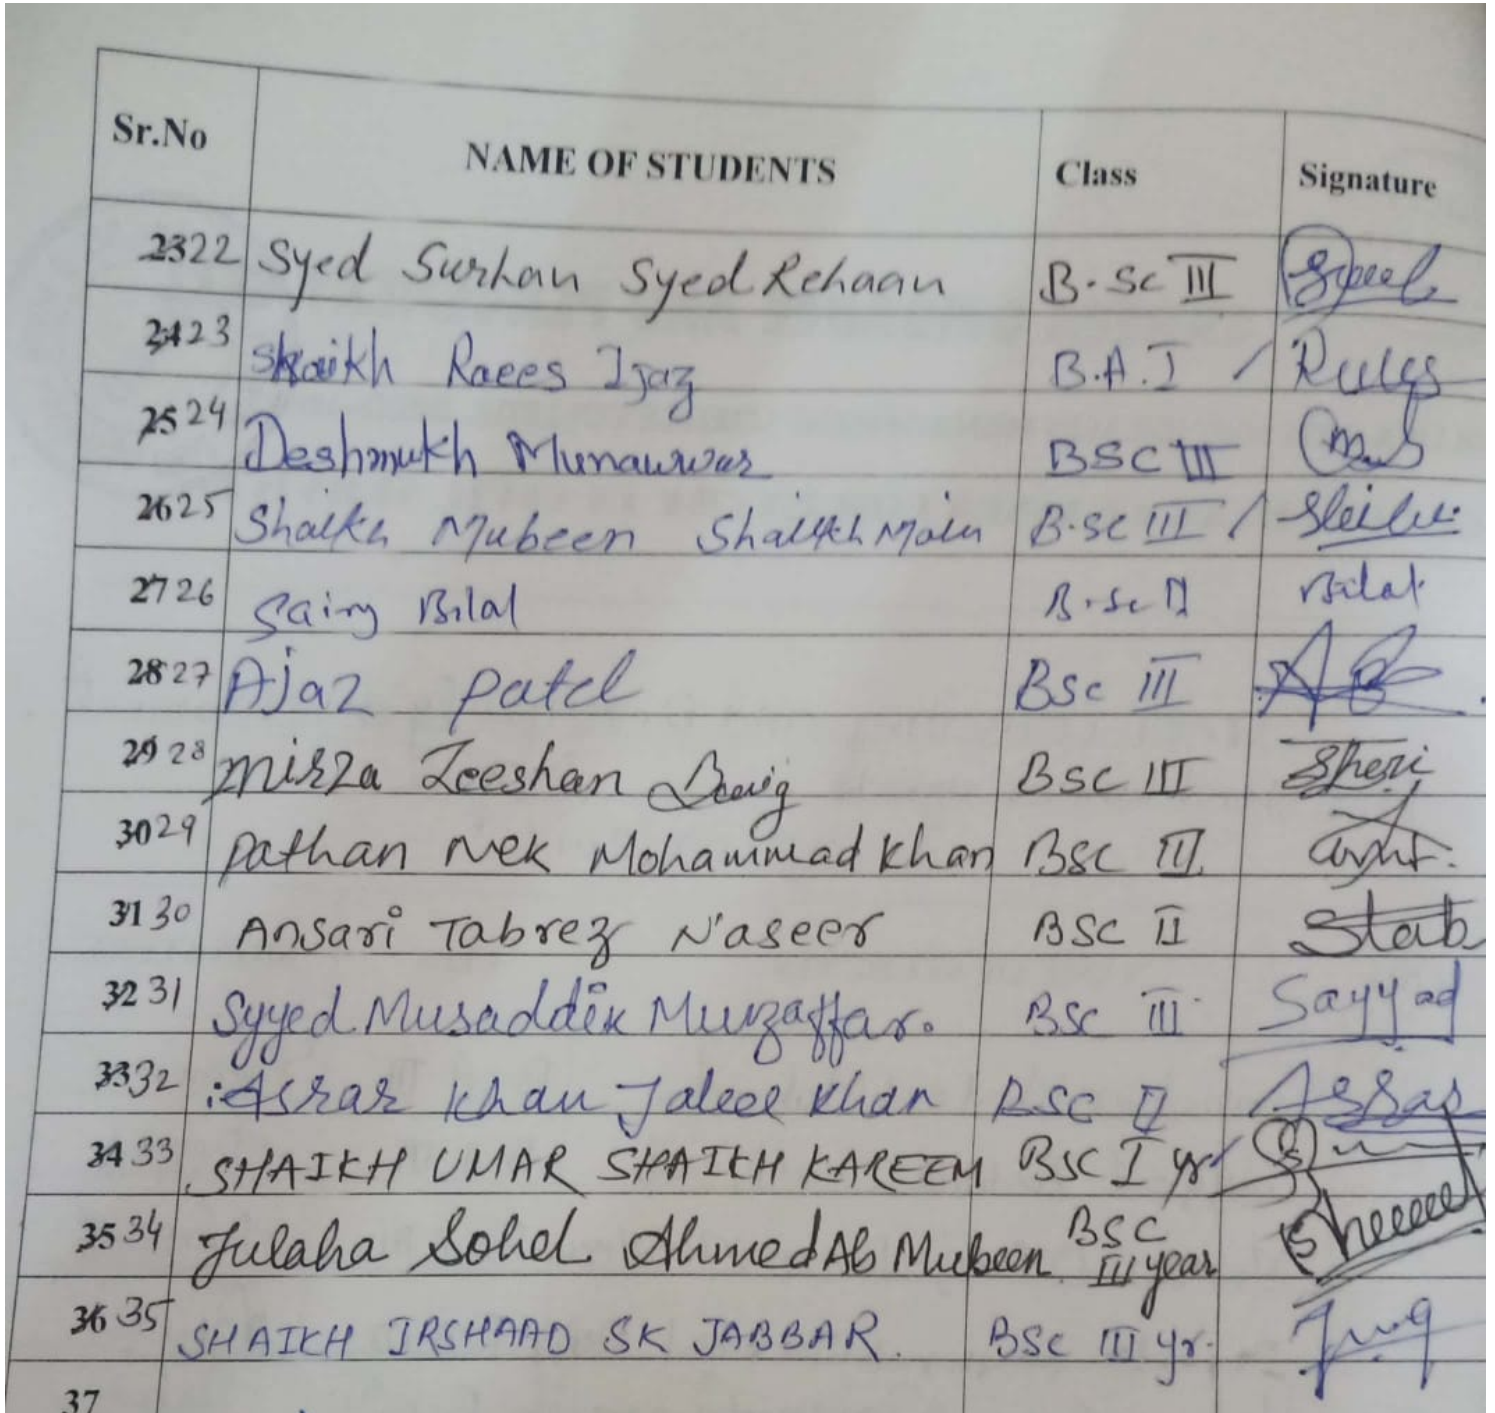 Sr.No NAME OF STUDENTS Class Signature
23 22 Syed Surhan Syed Rehaan B.Sc III
24 23 Shaikh Raees Ijaz B.A.I /
25 24 Deshmukh Munauwar BSC III
26 25 Shaikh Mubeen Shaikh Moin B.Sc III /
27 26 Bilal B.Sc II Bilal
28 27 Ajaz patel BSc III
29 28 Mirza Zeeshan Baig BSC III
30 29 Pathan Nek Mohammad Khan BSC III
31 30 Ansari Tabrez Naseer BSC II Stab
32 31 Syyed Musaddik Muzaffar. BSC III Sayyad
33 32 Asrar Khan Jaleel Khan BSC II Asrar
34 33 SHAIKH UMAR SHAIKH KAREEM BSC I yr
35 34 Julaha Sohel Ahmed Ab Mubeen BSC III year
36 35 SHAIKH IRSHAAD SK JABBAR. BSc III yr.
37